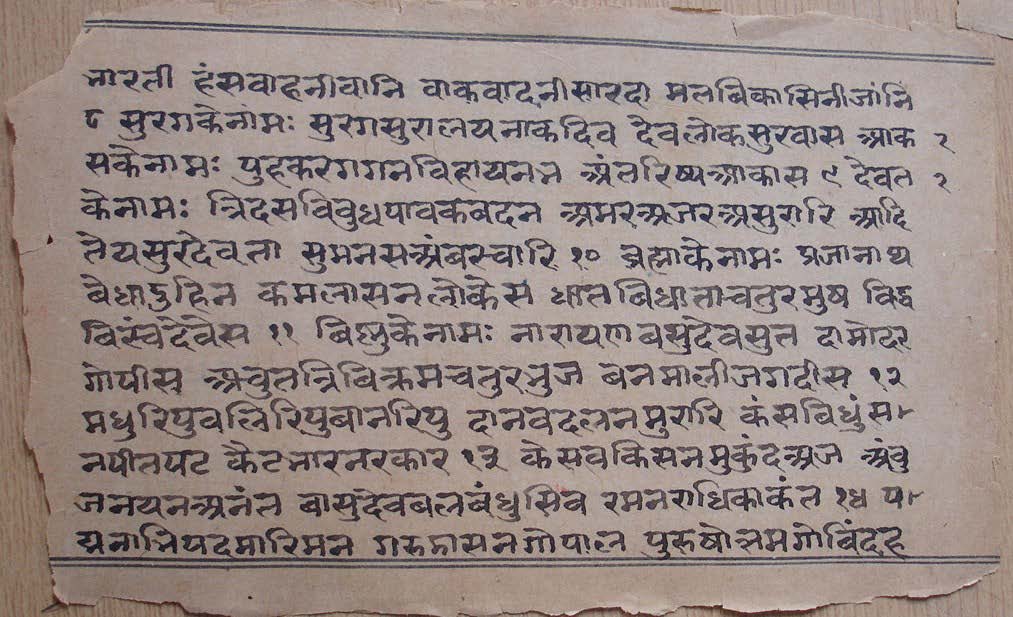 भारती हंसवाहनीवानि वाकवादनीसारदा मलबिकासिनीजांनि
८ सुरगकेनांमः सुरगसुरालयनाकदिव देवलोकसुरवास आक २
सकेनामः पुहकरगगनविहायनभ अंतरिष्यआकास ९ देवत २
केनामः त्रिदसविवुधपावकबदन अमरअजरअसुरारि आदि
तेयसुरदेवता सुमनसअंबरचारि १० ब्रह्माकेनामः प्रजानाथ
बेधाद्रुहिन कमलासनलोकेस धातबिधाताचतुरमुष बिद्ध
बिस्वंदेवेस ११ बिष्णुकेनामः नारायणबसुदेवसुत दामोदर
गोपीस अचुतत्रिविक्रमचतुरभुज बेनमालीजगदीस १२
मधुरिपुवलिरिपुबानरिपु दानवदलनमुरारि कंसविधुंस
नपीतपट कैटभारनरकार १३ केसवकिसनमुकुंदअज अंबु
जनयनअनंत बासुदेवबलबंधुसिव रमनराधिकाकंत १४ प
द्मनाभिपदमारिमन गरुडासनगोपाल पुरुषोत्तमगोबिंदह